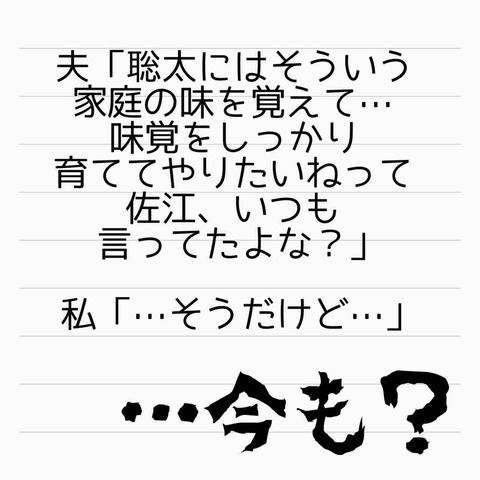 夫「聡太にはそういう
家庭の味を覚えて…
味覚をしっかり
育ててやりたいねって
佐江、いつも
言ってたよな？」
私「…そうだけど…」
…今も？